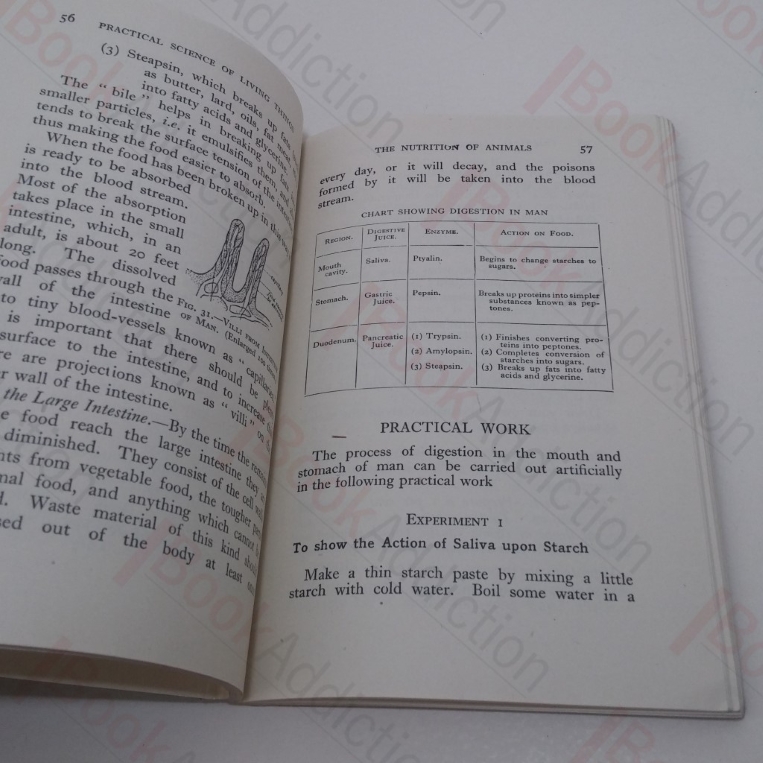 56 PRACTICAL SCIENCE OF LIVING THINGS
(3) Steapsin, which breaks up fats
as butter, lard, oils, fat meat
into fatty acids and glycerine.
The "bile" helps in breaking up
smaller particles, i.e. it emulsifies them, and
tends to break the surface tension of the
thus making the food easier to absorb.
When the food has been broken up in this
is ready to be absorbed
into the blood stream.
Most of the absorption
takes place in the small
intestine, which, in an
adult, is about 20 feet
long. The dissolved
food passes through the
wall of the intestine
to tiny blood-vessels known as
is important that there should be
surface to the intestine, and to increase
re are projections known as "villi" on
r wall of the intestine.
FIG. 31.—VILLI FROM
OF MAN. (Enlarged
the Large Intestine.—By the time the
e food reach the large intestine they
diminished. They consist of the cell
nts from vegetable food, the tougher
nal food, and anything which cannot
d. Waste material of this kind should
sed out of the body at least
THE NUTRITION OF ANIMALS 57
every day, or it will decay, and the poisons
formed by it will be taken into the blood
stream.
CHART SHOWING DIGESTION IN MAN
REGION. DIGESTIVE JUICE. ENZYME. ACTION ON FOOD.
Mouth cavity. Saliva. Ptyalin. Begins to change starches to
sugars.
Stomach. Gastric Juice. Pepsin. Breaks up proteins into simpler
substances known as pep-
tones.
Duodenum. Pancreatic Juice. (1) Trypsin. (1) Finishes converting pro-
teins into peptones.
(2) Amylopsin. (2) Completes conversion of
starches into sugars.
(3) Steapsin. (3) Breaks up fats into fatty
acids and glycerine.
PRACTICAL WORK
The process of digestion in the mouth and
stomach of man can be carried out artificially
in the following practical work
EXPERIMENT 1
To show the Action of Saliva upon Starch
Make a thin starch paste by mixing a little
starch with cold water. Boil some water in a
Book Addiction